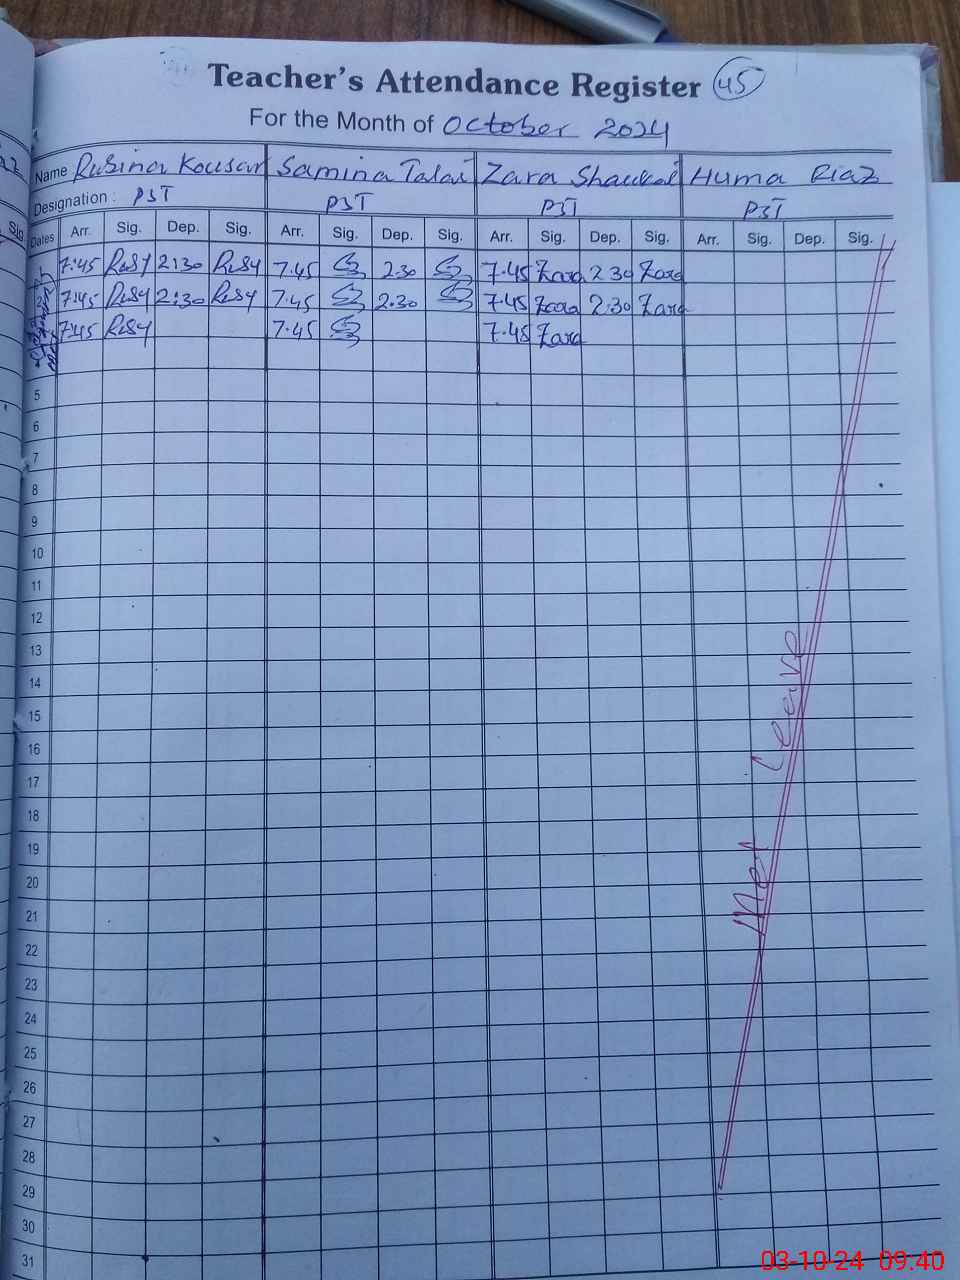 Teacher's Attendance Register 45
For the Month of October 2024
Name Rubina Kousar Samina Talat Zara Shaukat Huma Riaz
Designation : PST PST PST PST
Dates Arr. Sig. Dep. Sig. Arr. Sig. Dep. Sig. Arr. Sig. Dep. Sig. Arr. Sig. Dep. Sig.
7:45 2:30 7.45 2.30 7.45 Zara 2.30 Zara
7:45 2:30 7.45 2.30 7.45 Zara 2.30 Zara
7:45 7.45 7.45 Zara
5
6
7
8
9
10
11
12
13
14
15
16
17
18
19
20
21
22
23
24
25
26
27
28
29
30
31
Met Leave
Sig
03-10-24 09:40